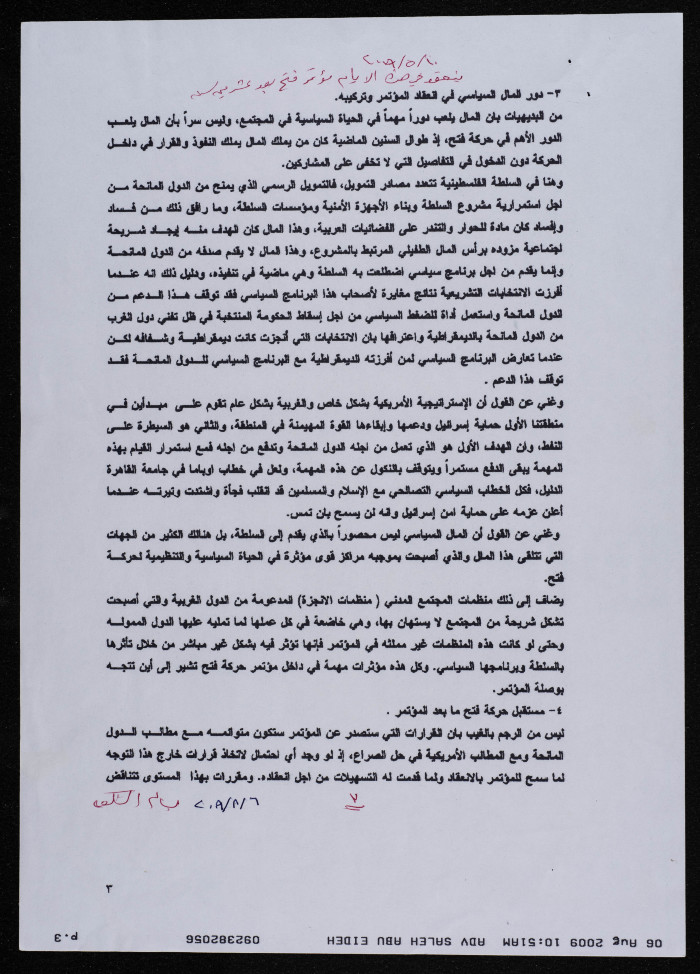 ٢٠٠٩/٥/٢٠
ينعقد في هذه الايام مؤتمر فتح بعد عشرين سنه
٣- دور المال السياسي في انعقاد المؤتمر وتركيبه.
من البديهيات بان المال يلعب دوراً مهماً في الحياة السياسية في المجتمع، وليس سراً بأن المال يلعب
الدور الأهم في حركة فتح، إذ طوال السنين الماضية كان من يملك المال يملك النفوذ والقرار في داخل
الحركة دون الدخول في التفاصيل التي لا تخفى على المشاركين.
وهنا في السلطة الفلسطينية تتعدد مصادر التمويل، فالتمويل الرسمي الذي يمنح من الدول المانحة من
اجل استمرارية مشروع السلطة وبناء الأجهزة الأمنية ومؤسسات السلطة، وما رافق ذلك من فساد
وإفساد كان مادة للحوار والتندر على الفضائيات العربية، وهذا المال كان الهدف منه إيجاد شريحة
اجتماعية مزوده برأس المال الطفيلي المرتبط بالمشروع، وهذا المال لا يقدم صدفه من الدول المانحة
وإنما يقدم من اجل برنامج سياسي اضطلعت به السلطة وهي ماضية في تنفيذه، ودليل ذلك انه عندما
أفرزت الانتخابات التشريعية نتائج مغايرة لأصحاب هذا البرنامج السياسي فقد توقف هذا الدعم من
الدول المانحة واستعمل أداة للضغط السياسي من اجل إسقاط الحكومة المنتخبة في ظل تغني دول الغرب
من الدول المانحة بالديمقراطية واعترافها بان الانتخابات التي أنجزت كانت ديمقراطية وشفافه لكن
عندما تعارض البرنامج السياسي لمن أفرزته الديمقراطية مع البرنامج السياسي للدول المانحة فقد
توقف هذا الدعم .
وغني عن القول أن الإستراتيجية الأمريكية بشكل خاص والغربية بشكل عام تقوم على مبدأين في
منطقتنا الأول حماية إسرائيل ودعمها وإبقاءها القوة المهيمنة في المنطقة، والثاني هو السيطرة على
النفط، وان الهدف الأول هو الذي تعمل من اجله الدول المانحة وتدفع من اجله فمع استمرار القيام بهذه
المهمة يبقى الدفع مستمراً ويتوقف بالنكول عن هذه المهمة، ولعل في خطاب اوباما في جامعة القاهرة
الدليل، فكل الخطاب السياسي التصالحي مع الإسلام والمسلمين قد انقلب فجأة واشتدت وتيرته عندما
أعلن عزمه على حماية امن إسرائيل وانه لن يسمح بان تمس.
وغني عن القول أن المال السياسي ليس محصوراً بالذي يقدم إلى السلطة، بل هنالك الكثير من الجهات
التي تتلقى هذا المال والذي أصبحت بموجبه مراكز قوى مؤثرة في الحياة السياسية والتنظيمية لحركة
فتح.
يضاف إلى ذلك منظمات المجتمع المدني ( منظمات الانجزة) المدعومة من الدول الغربية والتي أصبحت
تشكل شريحة من المجتمع لا يستهان بها، وهي خاضعة في كل عملها لما تمليه عليها الدول الممولة
وحتى لو كانت هذه المنظمات غير ممثله في المؤتمر فإنها تؤثر فيه بشكل غير مباشر من خلال تأثرها
بالسلطة وبرنامجها السياسي. وكل هذه مؤثرات مهمة في داخل مؤتمر حركة فتح تشير إلى أين تتجه
بوصلة المؤتمر.
٤- مستقبل حركة فتح ما بعد المؤتمر .
ليس من الرجم بالغيب بان القرارات التي ستصدر عن المؤتمر ستكون متوائمه مع مطالب الدول
المانحة ومع المطالب الأمريكية في حل الصراع، إذ لو وجد أي احتمال لاتخاذ قرارات خارج هذا التوجه
لما سمح للمؤتمر بالانعقاد ولما قدمت له التسهيلات من اجل انعقاده. ومقررات بهذا المستوى تتناقض
٧ ٢٠٠٩/٨/٦
٣
06 Aug 2009 10:51AM ADV SALEH ABU EIDEH 092382056 P.3